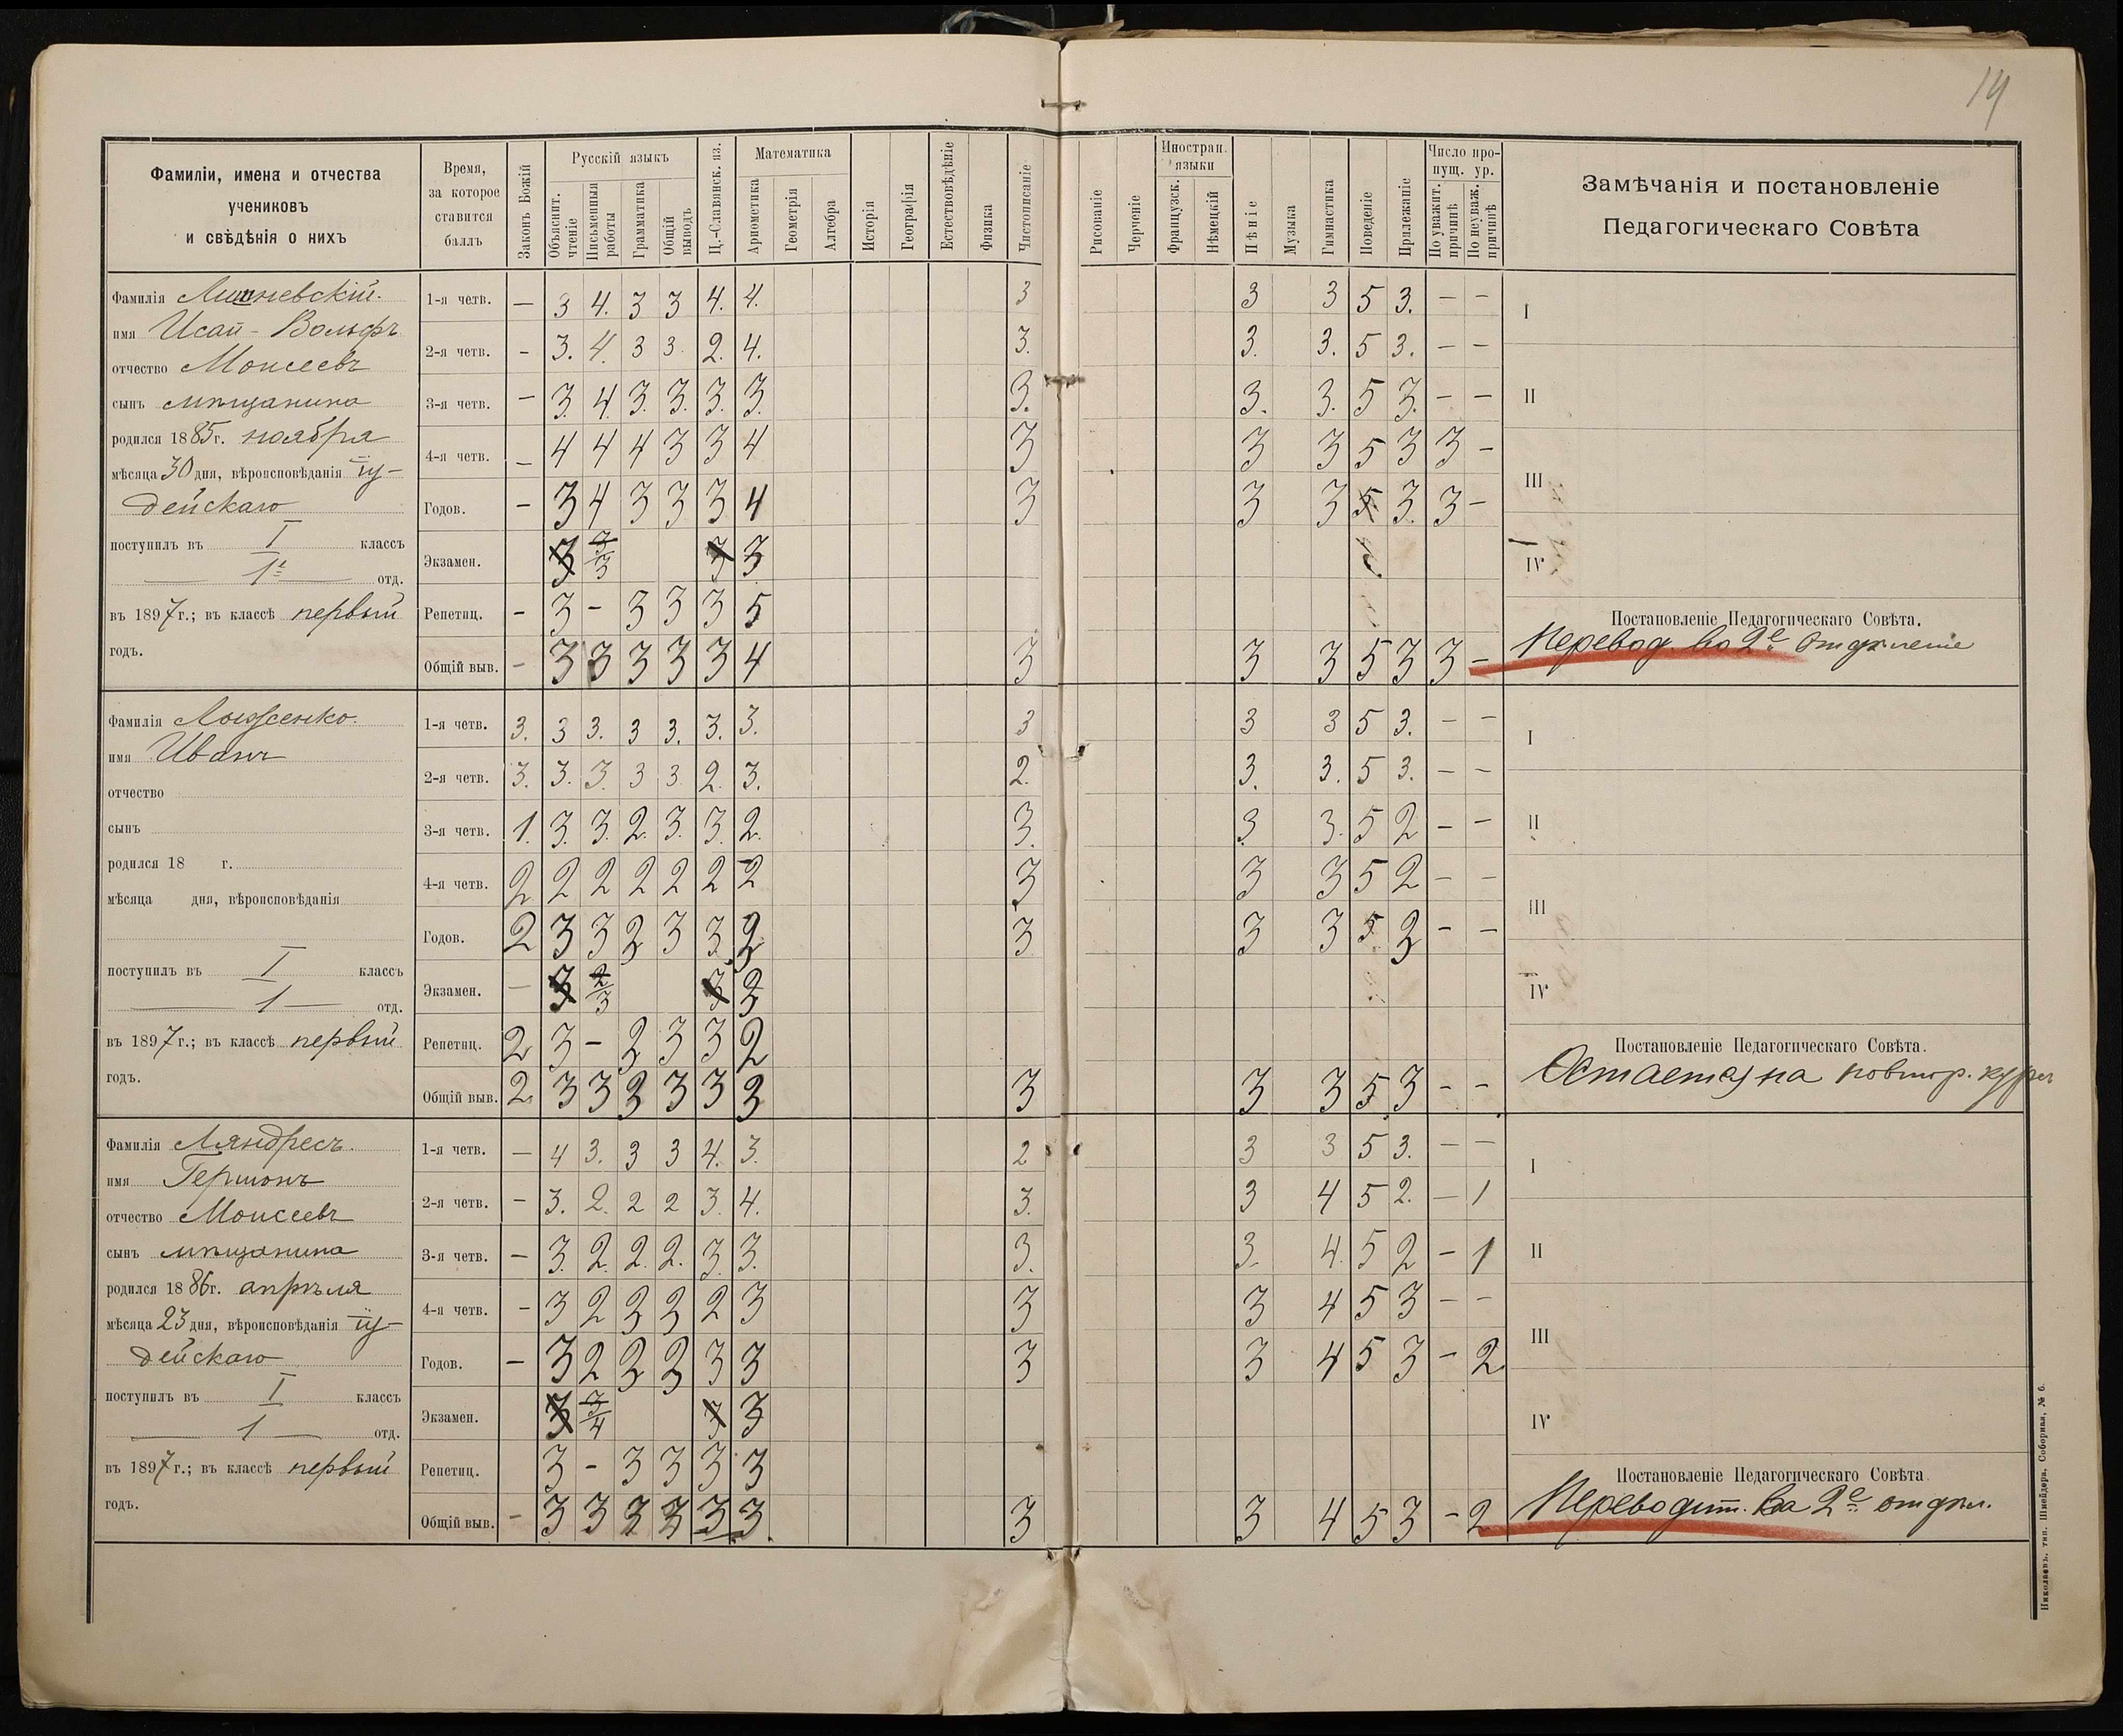 19
Фамиліи, имена и отчества
учениковъ
и свѣдѣнія о нихъ
Время,
за которое
ставится
баллъ
Законъ Божій
Русскій языкъ
Объяснит. чтеніе
Письменныя работы
Грамматика
Общій выводъ
Ц.-Славянск. яз.
Математика
Ариѳметика
Геометрія
Алгебра
Исторія
Географія
Естествовѣдѣніе
Физика
Чистописаніе
Рисованіе
Черченіе
Иностран. языки
Французск.
Нѣмецкій
Пѣніе
Музыка
Гимнастика
Поведеніе
Прилежаніе
Число пропущ. ур.
По уважит. причинѣ
По неуваж. причинѣ
Замѣчанія и постановленіе
Педагогическаго Совѣта
Фамилія Лишневскій.
имя Исай - Вольфъ
отчество Моисеевъ
сынъ мѣщанина
родился 1885г. ноября
мѣсяца 30 дня, вѣроисповѣданія іу-
дейскаго
поступилъ въ I классъ
1е отд.
въ 1897 г.; въ классѣ первый
годъ.
1-я четв. — 3 4. 3 3 4. 4. 3 3 3 5 3. — —
2-я четв. - 3. 4. 3 3. 2. 4. 3. 3. 3. 5 3. — —
3-я четв. - 3. 4. 3. 3. 3. 3. 3. 3. 3. 5 3. — —
4-я четв. — 4 4 4 3 3 4 3 3 3 5 3 3 -
Годов. - 3 4 3 3 3 4 3 3 3 5 3. 3 -
Экзамен. 3 3/3 3 3
Репетиц. - 3 - 3 3 3 5
Общій выв. - 3 3 3 3 3 4 3 3 3 5 3 3 -
I
II
III
IV
Постановленіе Педагогическаго Совѣта.
Перевод. во 2е отдѣленіе
Фамилія Лоиженко.
имя Иванъ
отчество
сынъ
родился 18 г.
мѣсяца дня, вѣроисповѣданія
поступилъ въ I классъ
1 отд.
въ 1897 г.; въ классѣ первый
годъ.
1-я четв. 3. 3 3. 3 3. 3. 3. 3 3 3 5 3. — —
2-я четв. 3. 3. 3. 3 3 2. 3. 2. 3. 3. 5 3. — —
3-я четв. 1. 3. 3. 2. 3. 3. 2. 3. 3. 3. 5 2 — —
4-я четв. 2 2 2 2 2 2 2 3 3 3 5 2 — —
Годов. 2 3 3 2 3 3 2 3 3 3 5 2 - —
Экзамен. — 3 2/3 3 2
Репетиц. 2 3 - 2 3 3 2
Общій выв. 2. 3 3 2 3 3 2 3 3 3 5 3 - -
I
II
III
IV
Постановленіе Педагогическаго Совѣта.
Остается на повтор. курсъ
Фамилія Ляндресъ.
имя Гершонъ
отчество Моисеевъ
сынъ мѣщанина
родился 1886г. апрѣля
мѣсяца 23 дня, вѣроисповѣданія іу-
дейскаго
поступилъ въ I классъ
1 отд.
въ 1897 г.; въ классѣ первый
годъ.
1-я четв. — 4 3. 3 3 4. 3. 2 3 3 5 3. — —
2-я четв. - 3. 2. 2 2 3. 4. 3. 3 4 5 2. — 1
3-я четв. - 3. 2. 2. 2. 3. 3. 3. 3. 4. 5 2 - 1
4-я четв. - 3 2 2 2 2 3 3 3 4 5 3 - -
Годов. - 3 2 2 2 3 3 3 3 4 5 3 - 2
Экзамен. 3 3/4 3 3
Репетиц. 3 - 3 3 3 3
Общій выв. - 3 3 3 3 3 3. 3 3 4 5 3 - 2
I
II
III
IV
Постановленіе Педагогическаго Совѣта.
Переводит. во 2е отдѣл.
Николаевъ, тип. Шнейдера, Соборная, № 6.